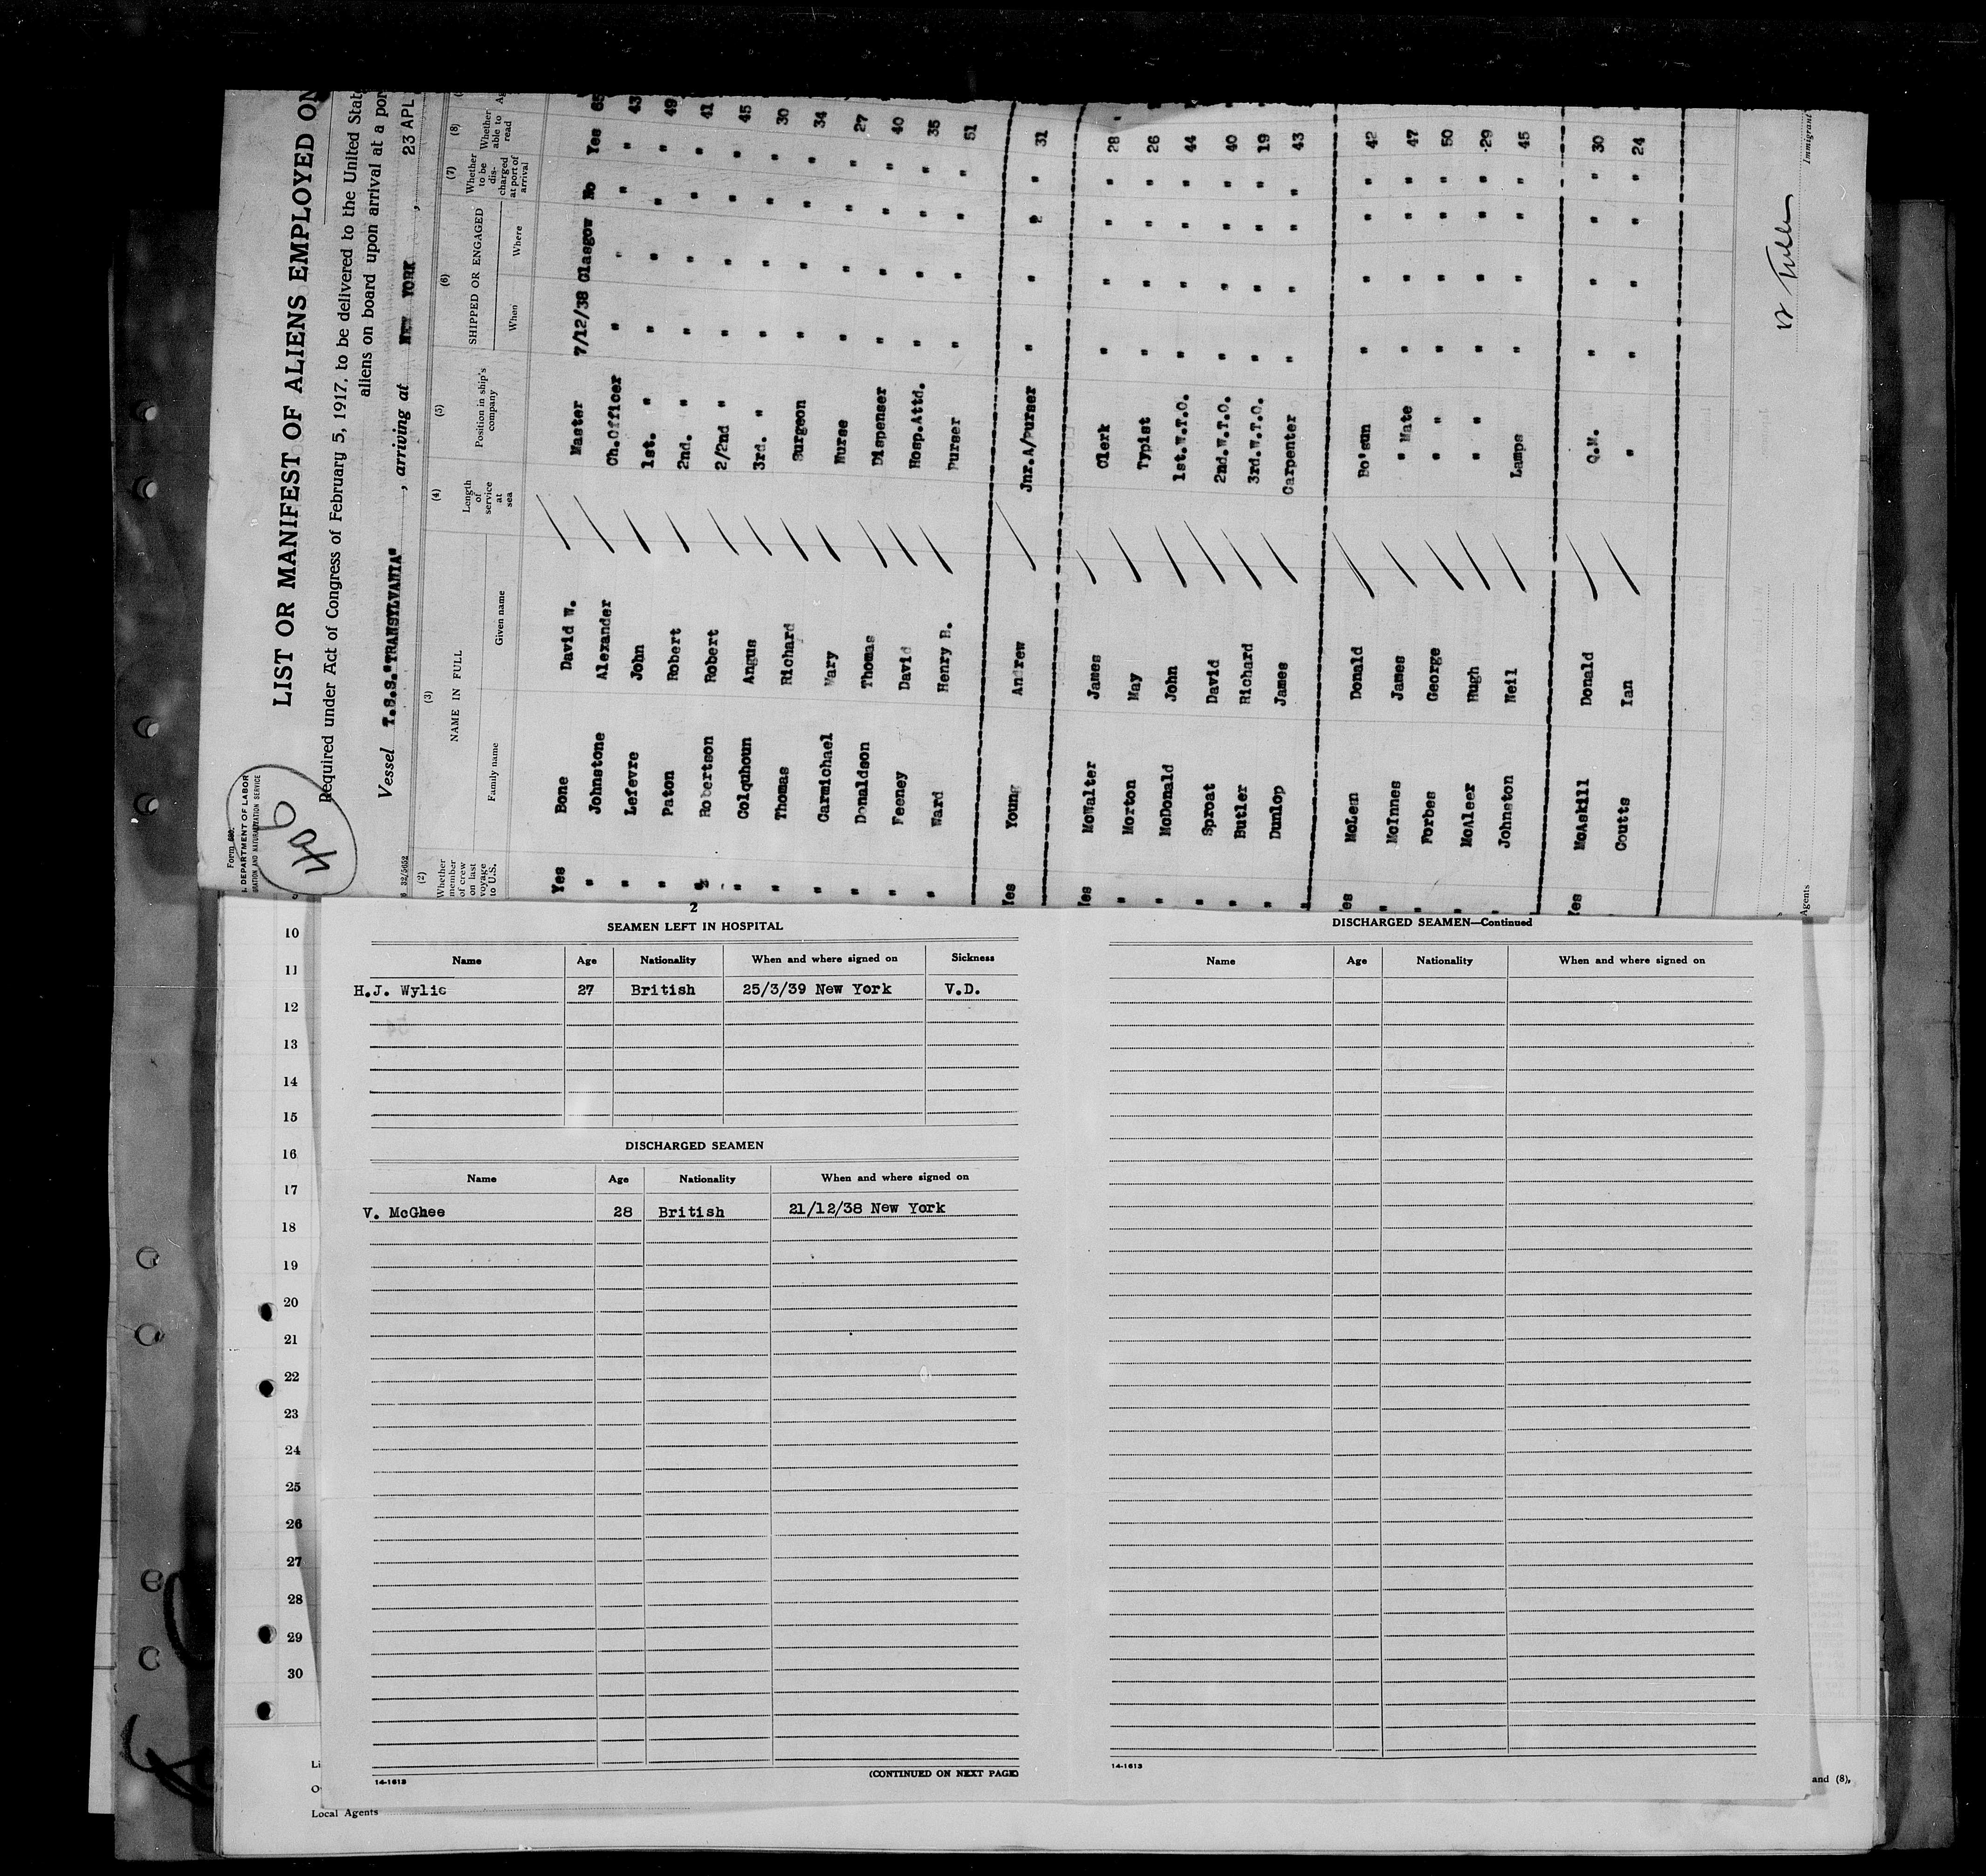 Form 680.
DEPARTMENT OF LABOR
IMMIGRATION AND NATURALIZATION SERVICE
406
LIST OR MANIFEST OF ALIENS EMPLOYED ON
Required under Act of Congress of February 5, 1917, to be delivered to the United Stat
aliens on board upon arrival at a por
Vessel T.S.S."TRANSYLVANIA" , arriving at NEW YORK , 23 APL
6 32/5652
(2) (3) (4) (5) (6) (7) (8)
Whether member of crew on last voyage to U.S. NAME IN FULL Family name Given name Length of service at sea Position in ship's company SHIPPED OR ENGAGED When Where Whether to be discharged at port of arrival Whether able to read Ag
Yes Bone David W. Master 7/12/38 Glasgow No Yes 65
" Johnstone Alexander Ch.Officer " " " " 43
" Lefevre John 1st. " " " " " 49
" Paton Robert 2nd. " " " " " 41
" Robertson Robert 2/2nd " " " " " 45
" Colquhoun Angus 3rd. " " " " " 30
" Thomas Richard Surgeon " " " " 34
" Carmichael Mary Nurse " " " " 27
" Donaldson Thomas Dispenser " " " " 40
" Feeney David Hosp.Attd. " " " " 35
" Ward Henry B. Purser " " " " 51
Yes Young Andrew Jnr.A/Purser " " " " 31
Yes McWalter James Clerk " " " " 28
" Morton May Typist " " " " 26
" McDonald John 1st.W.T.O. " " " " 44
" Sproat David 2nd.W.T.O. " " " " 40
" Butler Richard 3rd.W.T.O. " " " " 19
" Dunlop James Carpenter " " " " 43
Yes McLem Donald Bo'sun " " " " 42
" McInnes James " Mate " " " " 47
" Forbes George " " " " " " 50
" McAleer Hugh " " " " " " 29
" Johnston Neil Lamps " " " " 45
Yes McAskill Donald Q.M. " " " " 30
" Coutts Ian " " " " " 24
Agents
Immigrant
2
SEAMEN LEFT IN HOSPITAL
Name Age Nationality When and where signed on Sickness
H.J. Wylie 27 British 25/3/39 New York V.D.
DISCHARGED SEAMEN
Name Age Nationality When and where signed on
V. McGhee 28 British 21/12/38 New York
14-1613
(CONTINUED ON NEXT PAGE)
DISCHARGED SEAMEN—Continued
Name Age Nationality When and where signed on
14-1613
10
11
12
13
14
15
16
17
18
19
20
21
22
23
24
25
26
27
28
29
30
Li
O
and (8),
Local Agents